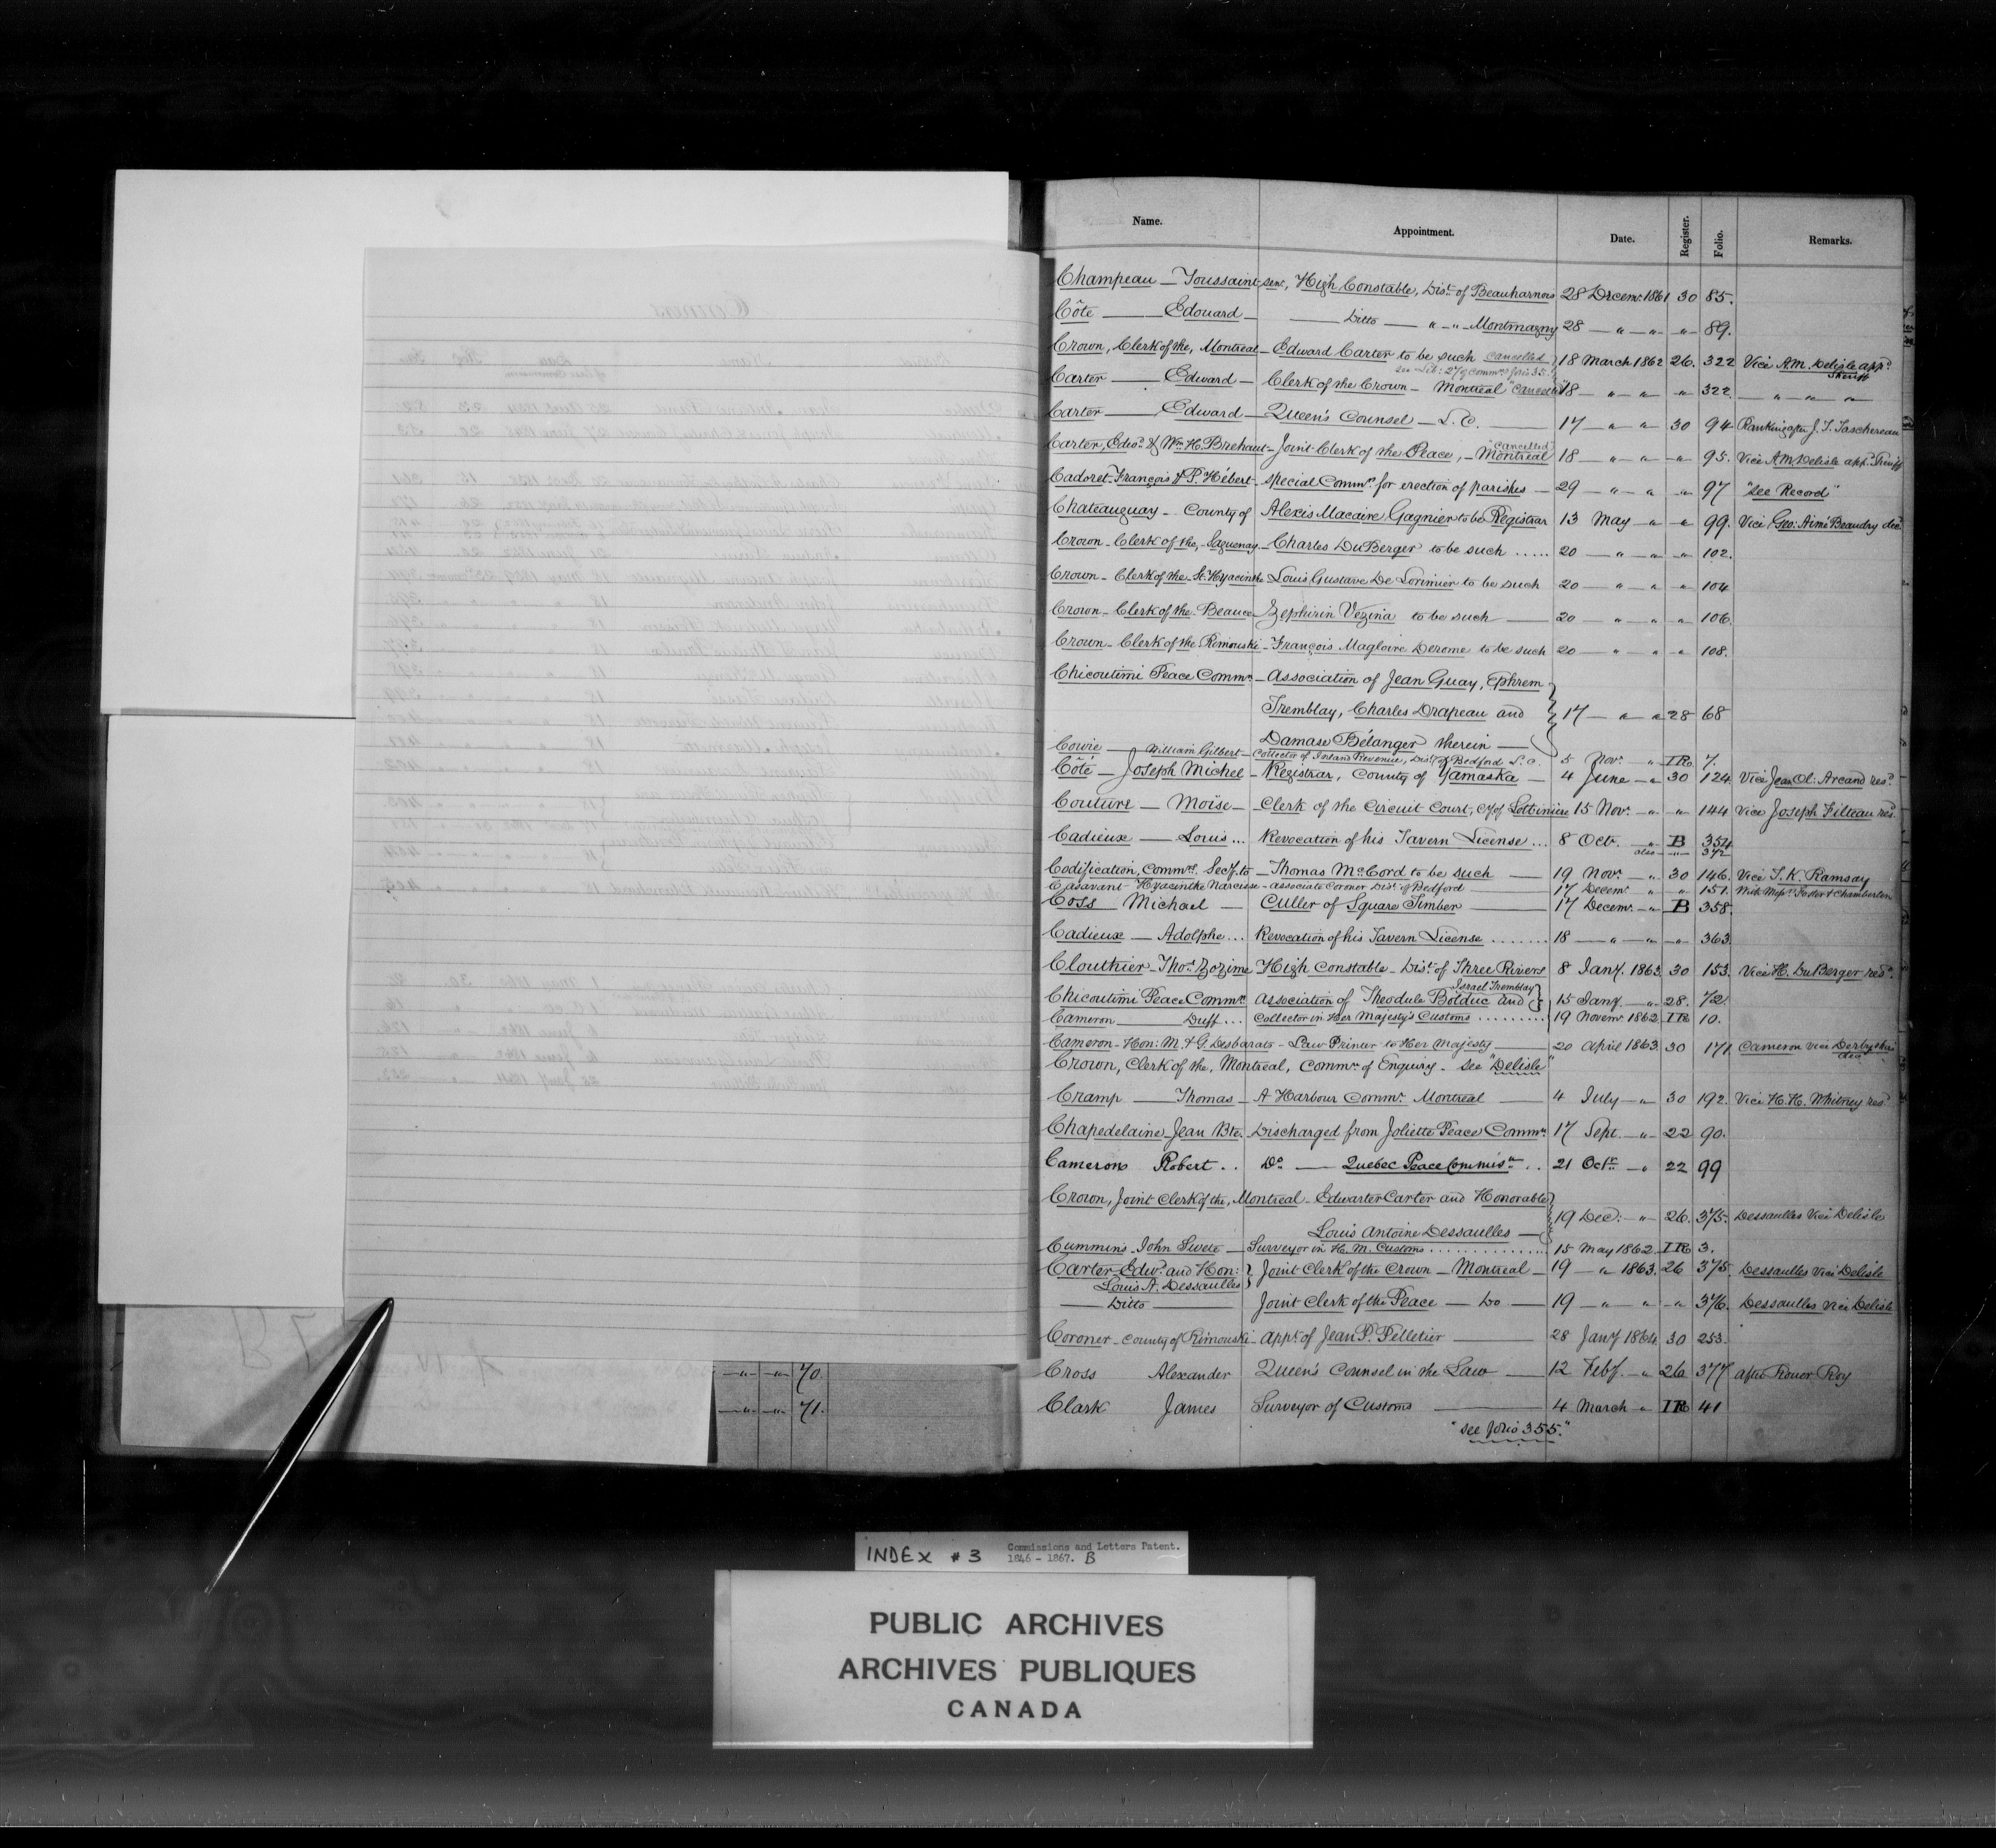 Name. Appointment. Date. Register. Folio. Remarks.
Champeau — Toussaint senr, High Constable, Dist. of Beauharnois 28 Decemr. 1861 30 85.
Côté — Edouard — Ditto — " — " — Montmagny 28 — " — " — " — 89.
Crown, Clerk of the, Montreal — Edward Carter to be such Cancelled 18 March 1862 26. 322 Vice A.M. Delisle appd. Sheriff
Carter — Edward — Clerk of the Crown — Montreal "Cancelled" 18 — " — " " 322 — " — " — "
Carter — Edward — Queen's Counsel — L.C. — 17 — " — " 30 94 Ranking after J. T. Taschereau
Carter, Edwd. & Wm. H. Brehaut — Joint Clerk of the Peace, — Montreal "Cancelled" 18 — " — " — " — 95. Vice A.M. Delisle app. Sheriff
Cadoret François & P. Hébert — Special Commn. for erection of parishes — 29 — " — " — " — 97 "See Record"
Chateauguay — County of Alexis Macaire Gagnier to be Registrar 13 May — " — " 99. Vice Geo: Aimé Beaudry decd.
Crown — Clerk of the, — Saguenay — Charles DuBerger to be such ..... 20 — " — " — " 102.
Crown — Clerk of the — St. Hyacinthe Louis Gustave De Lorimier to be such 20 — " — " — " 104
Crown — Clerk of the — Beauce — Zephirin Vezina to be such — 20 — " — " — " 106.
Crown — Clerk of the Rimouski — François Magloire Derome to be such 20 — " — " — " 108.
Chicoutimi Peace Commn. — Association of Jean Guay, Ephrem
Tremblay, Charles Drapeau and 17 — " — " 28 68
Damase Bélanger therein —
Cowie — William Gilbert — Collector of Inland Revenue, Dist. of Bedford L.C. 5 Novr. " IR 7.
Côté — Joseph Michel — Registrar, County of Yamaska — 4 June — " 30 124 Vice Jean Ol: Arcand resd.
Couture — Moïse — Clerk of the Circuit Court, Cy of Lotbinière 15 Novr. — " — " 144 Vice Joseph Filteau resd.
Cadieux — Louis ... Revocation of his Tavern License ... 8 Octr. — " — B 354
also — " — 372
Codification, Commn. Secy. to — Thomas McCord to be such — 19 Novr. — " 30 146. Vice T. K. Ramsay
Casavant — Hyacinthe Narcisse — Associate Coroner Dist. of Bedford — 17 Decemr. " " 151. With Messrs. Foster & Chamberlin
Coss Michael — Culler of Square Timber — 17 Decemr. — " B 358.
Cadieux — Adolphe ... Revocation of his Tavern License ....... 18 — " — " — " — 363.
Clouthier — Thos. Zozime High Constable — Dist. of Three Rivers 8 Jany. 1863. 30 153. Vice H. DuBerger resd.
Chicoutimi Peace Commn. Association of Theodule Bolduc and Israel Tremblay 15 Jany. — " 28. 72.
Cameron — Duff ... Collector in Her Majesty's Customs ......... 19 Novemr. 1862 IR 10.
Cameron — Hon: M. & G. Desbarats — Law Printer to Her Majesty — 20 April 1863. 30 171 Cameron vice Derbyshire decd.
Crown, Clerk of the, Montreal, Commn. of Enquiry — See "Delisle"
Cramp — Thomas — A Harbour Commr. Montreal — 4 July — " 30 192. Vice H. H. Whitney resd.
Chapedelaine Jean Bte. Discharged from Joliette Peace Commn. 17 Sept. — " — 22 90.
Cameron Robert .. Do. — Quebec Peace Commissn. .. 21 Octr. — " 22 99
Crown, Joint Clerk of the, Montreal — Edwarter Carter and Honorable
Louis Antoine Dessaulles — 19 Dec: — " — 26. 375. Dessaulles Vice Delisle
Cummins John — Surveyor in H. M. Customs .............. 15 May 1862. IR 3.
Carter Edwd. and Hon: Joint Clerk of the Crown — Montreal — 19 — " 1863. 26 375. Dessaulles Vice Delisle
Louis A. Dessaulles
— Ditto — Joint Clerk of the Peace — Do — 19 — " — " — " 376. Dessaulles Vice Delisle
Coroner — County of Rimouski — Appt. of Jean P. Pelletier — 28 Jany 1864. 30 253.
Cross Alexander Queen's Counsel in the Law — 12 Feby. — " 26 377 after Rouer Roy
Clark James Surveyor of Customs — 4 March " IR 41
"See folio 355."
— " — " — 70.
— " — " — 71.
INDEX #3 Commissions and Letters Patent.
1846 - 1867. B
PUBLIC ARCHIVES
ARCHIVES PUBLIQUES
CANADA